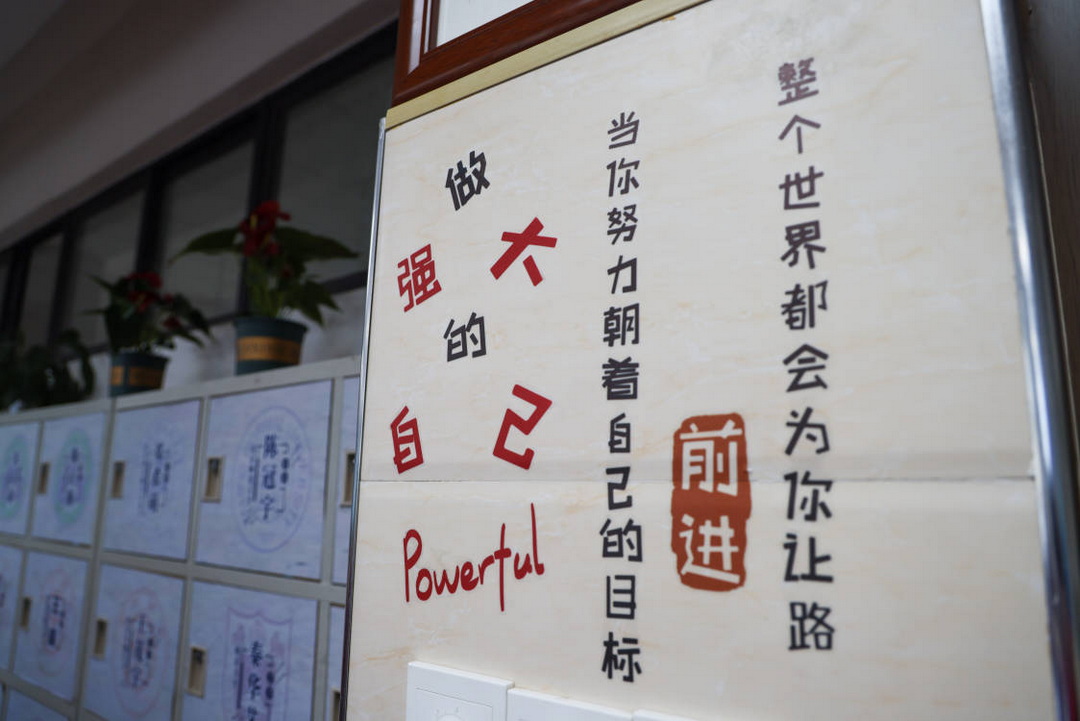 做
强大
的
自己
Powerful
当你努力朝着自己的目标
前进
整个世界都会为你让路
陈冠宇
秦华